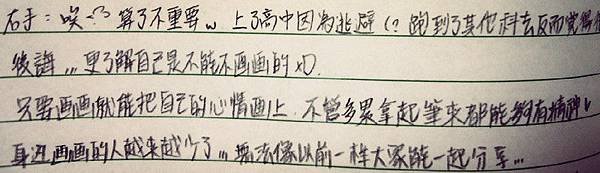 右手：唉...? 算了不重要。 上了高中因為逃避（? 跑到了其他科去反而覺得很
後誨 ,,, 更了解自己是不能不画画的 xD.
只要画画就能把自己的心情画上. 不管多累拿起筆來都能夠有精神
身边画画的人越来越少了 ,,, 無法像以前一样大家能一起分享...